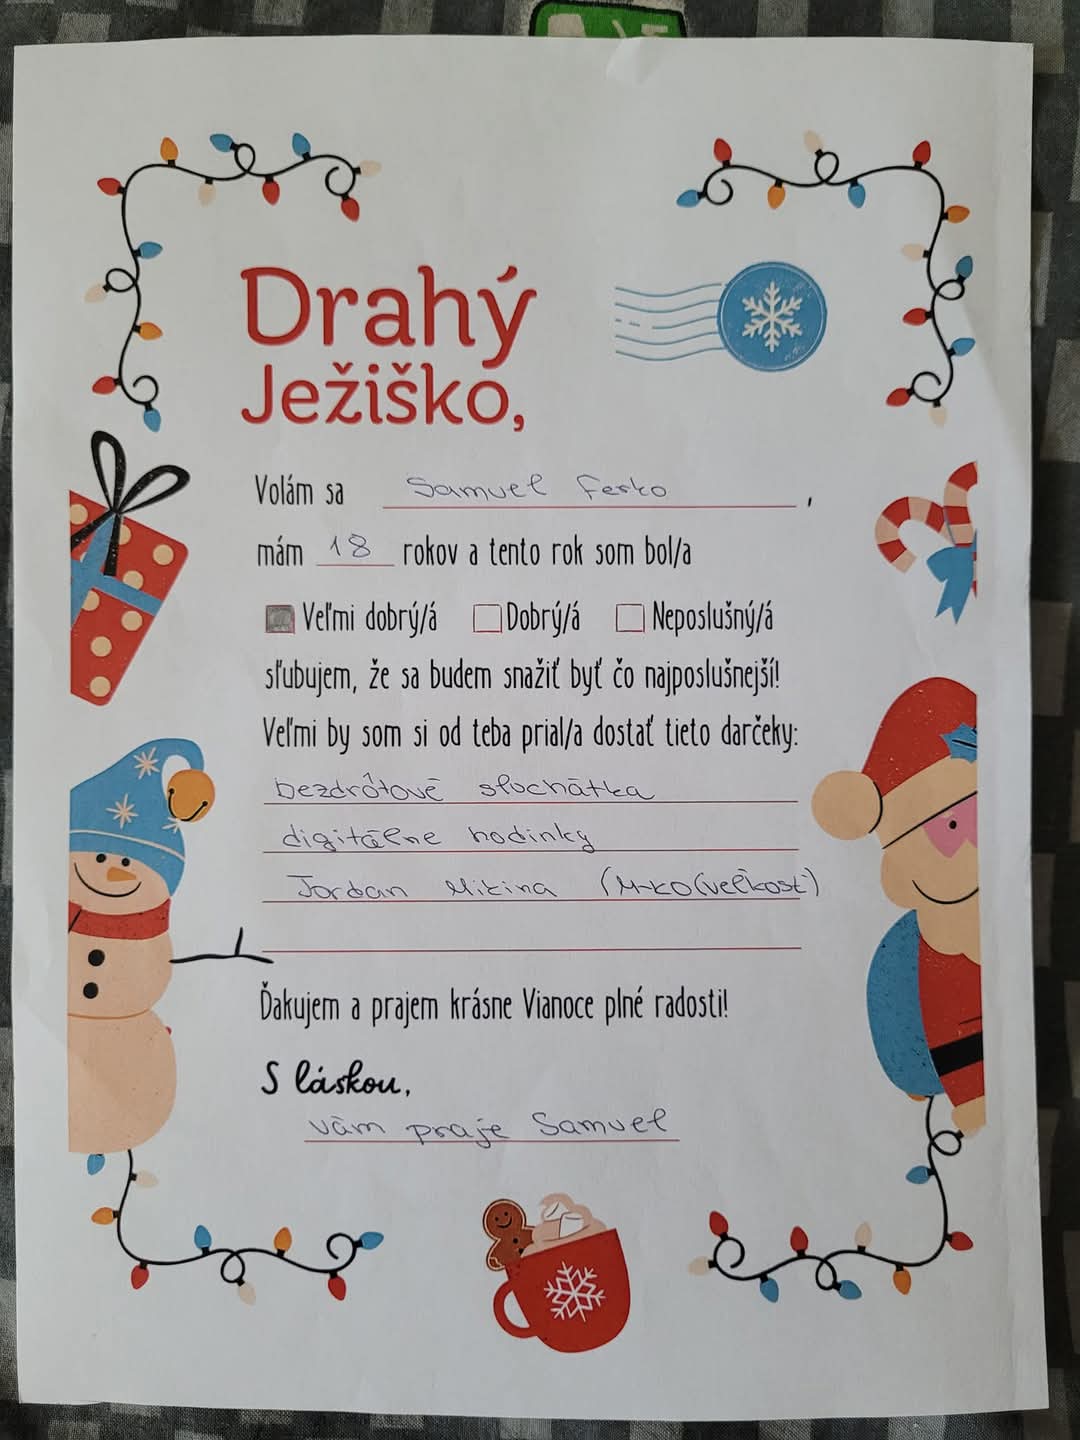 Drahý
Ježiško,
Volám sa Samuel Ferko,
mám 18 rokov a tento rok som bol/a
Veľmi dobrý/á Dobrý/á Neposlušný/á
sľubujem, že sa budem snažiť byť čo najposlušnejší!
Veľmi by som si od teba prial/a dostať tieto darčeky:
bezdrôtové sluchátka
digitálne hodinky
Jordan Mikina (M-ko(veľkosť)
Ďakujem a prajem krásne Vianoce plné radosti!
S láskou,
vám praje Samuel